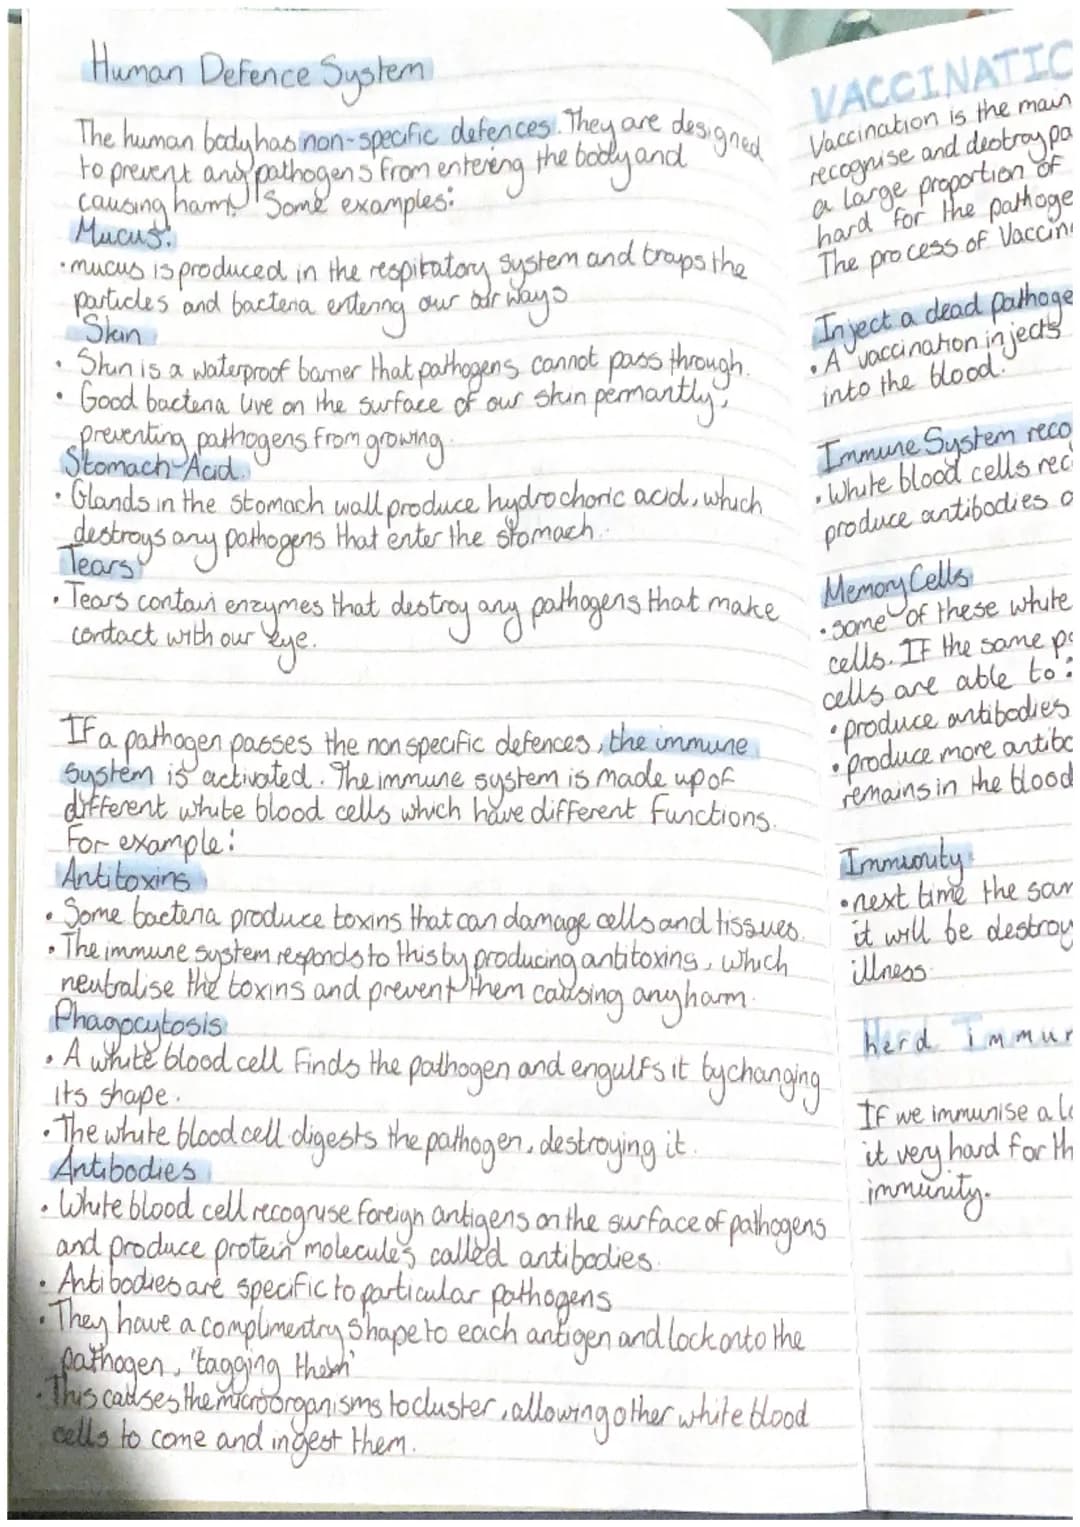 Human Defence System
The human body has non-specific defences. They are designed
to prevent any pathogens from entereng the body and
causing harm. Some examples:
Mucus:
• mucus is produced in the respitatory system and traps the
particles and bacteria entering our air ways
Skin
• Skin is a waterproof barrier that pathogens cannot pass through.
• Good bacteria live on the surface of our skin permantly,
preventing pathogens from growing.
Stomach Acid.
• Glands in the stomach wall produce hydrochoric acid, which
destroys any pathogens that enter the stomach.
Tears
• Tears contain enzymes that destroy any pathogens that make
contact with our eye.
If a pathogen passes the non specific defences, the immune
system is activated. The immune system is made up of
different white blood cells which have different functions.
For example:
Antitoxins
• Some bacteria produce toxins that can damage cells and tissues.
• The immune system responds to this by producing antitoxins, which
neutralise the toxins and prevent them causing any harm.
Phagocytosis
• A white blood cell finds the pathogen and engulfs it by changing
its shape.
• The white blood cell digests the pathogen, destroying it.
Antibodies
• White blood cell recognise foreign antigens on the surface of pathogens
and produce protein molecules called antibodies.
• Antibodies are specific to particular pathogens
• They have a complimentry shape to each antigen and lock onto the
pathogen, 'tagging them'
• This causes the microorganisms to cluster, allowing other white blood
cells to come and ingest them.
VACCINATIO
Vaccination is the main
recognise and destroy pa
a large proportion of
hard for the pathoge
The process of Vaccin
Inject a dead pathoge
• A vaccination injects
into the blood.
Immune System reco
• White blood cells rec
produce antibodies
Memory Cells
• some of these white
cells. If the same p
cells are able to:
• produce antibodies
• produce more antibo
remains in the blood
Immunity
• next time the sam
it will be destroy
illness
Herd Immun
If we immunise a la
it very hard for th
immunity.